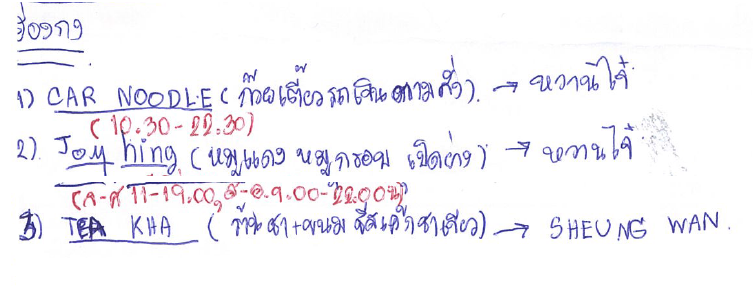 ฮ่องกง
1) CAR NOODLE (ก๋วยเตี๋ยวรถเข็นตามสั่ง) → หวานไจ๋
(10.30-22.30)
2) Joy hing (หมูแดง หมูกรอบ เป็ดย่าง) → หวานไจ๋
(จ-ศ 11-19.00, ส-อ. 9.00-22.00น)
3) TEA KHA (ร้านชา+ขนม ชีสเค้กชาเขียว) → SHEUNG WAN.